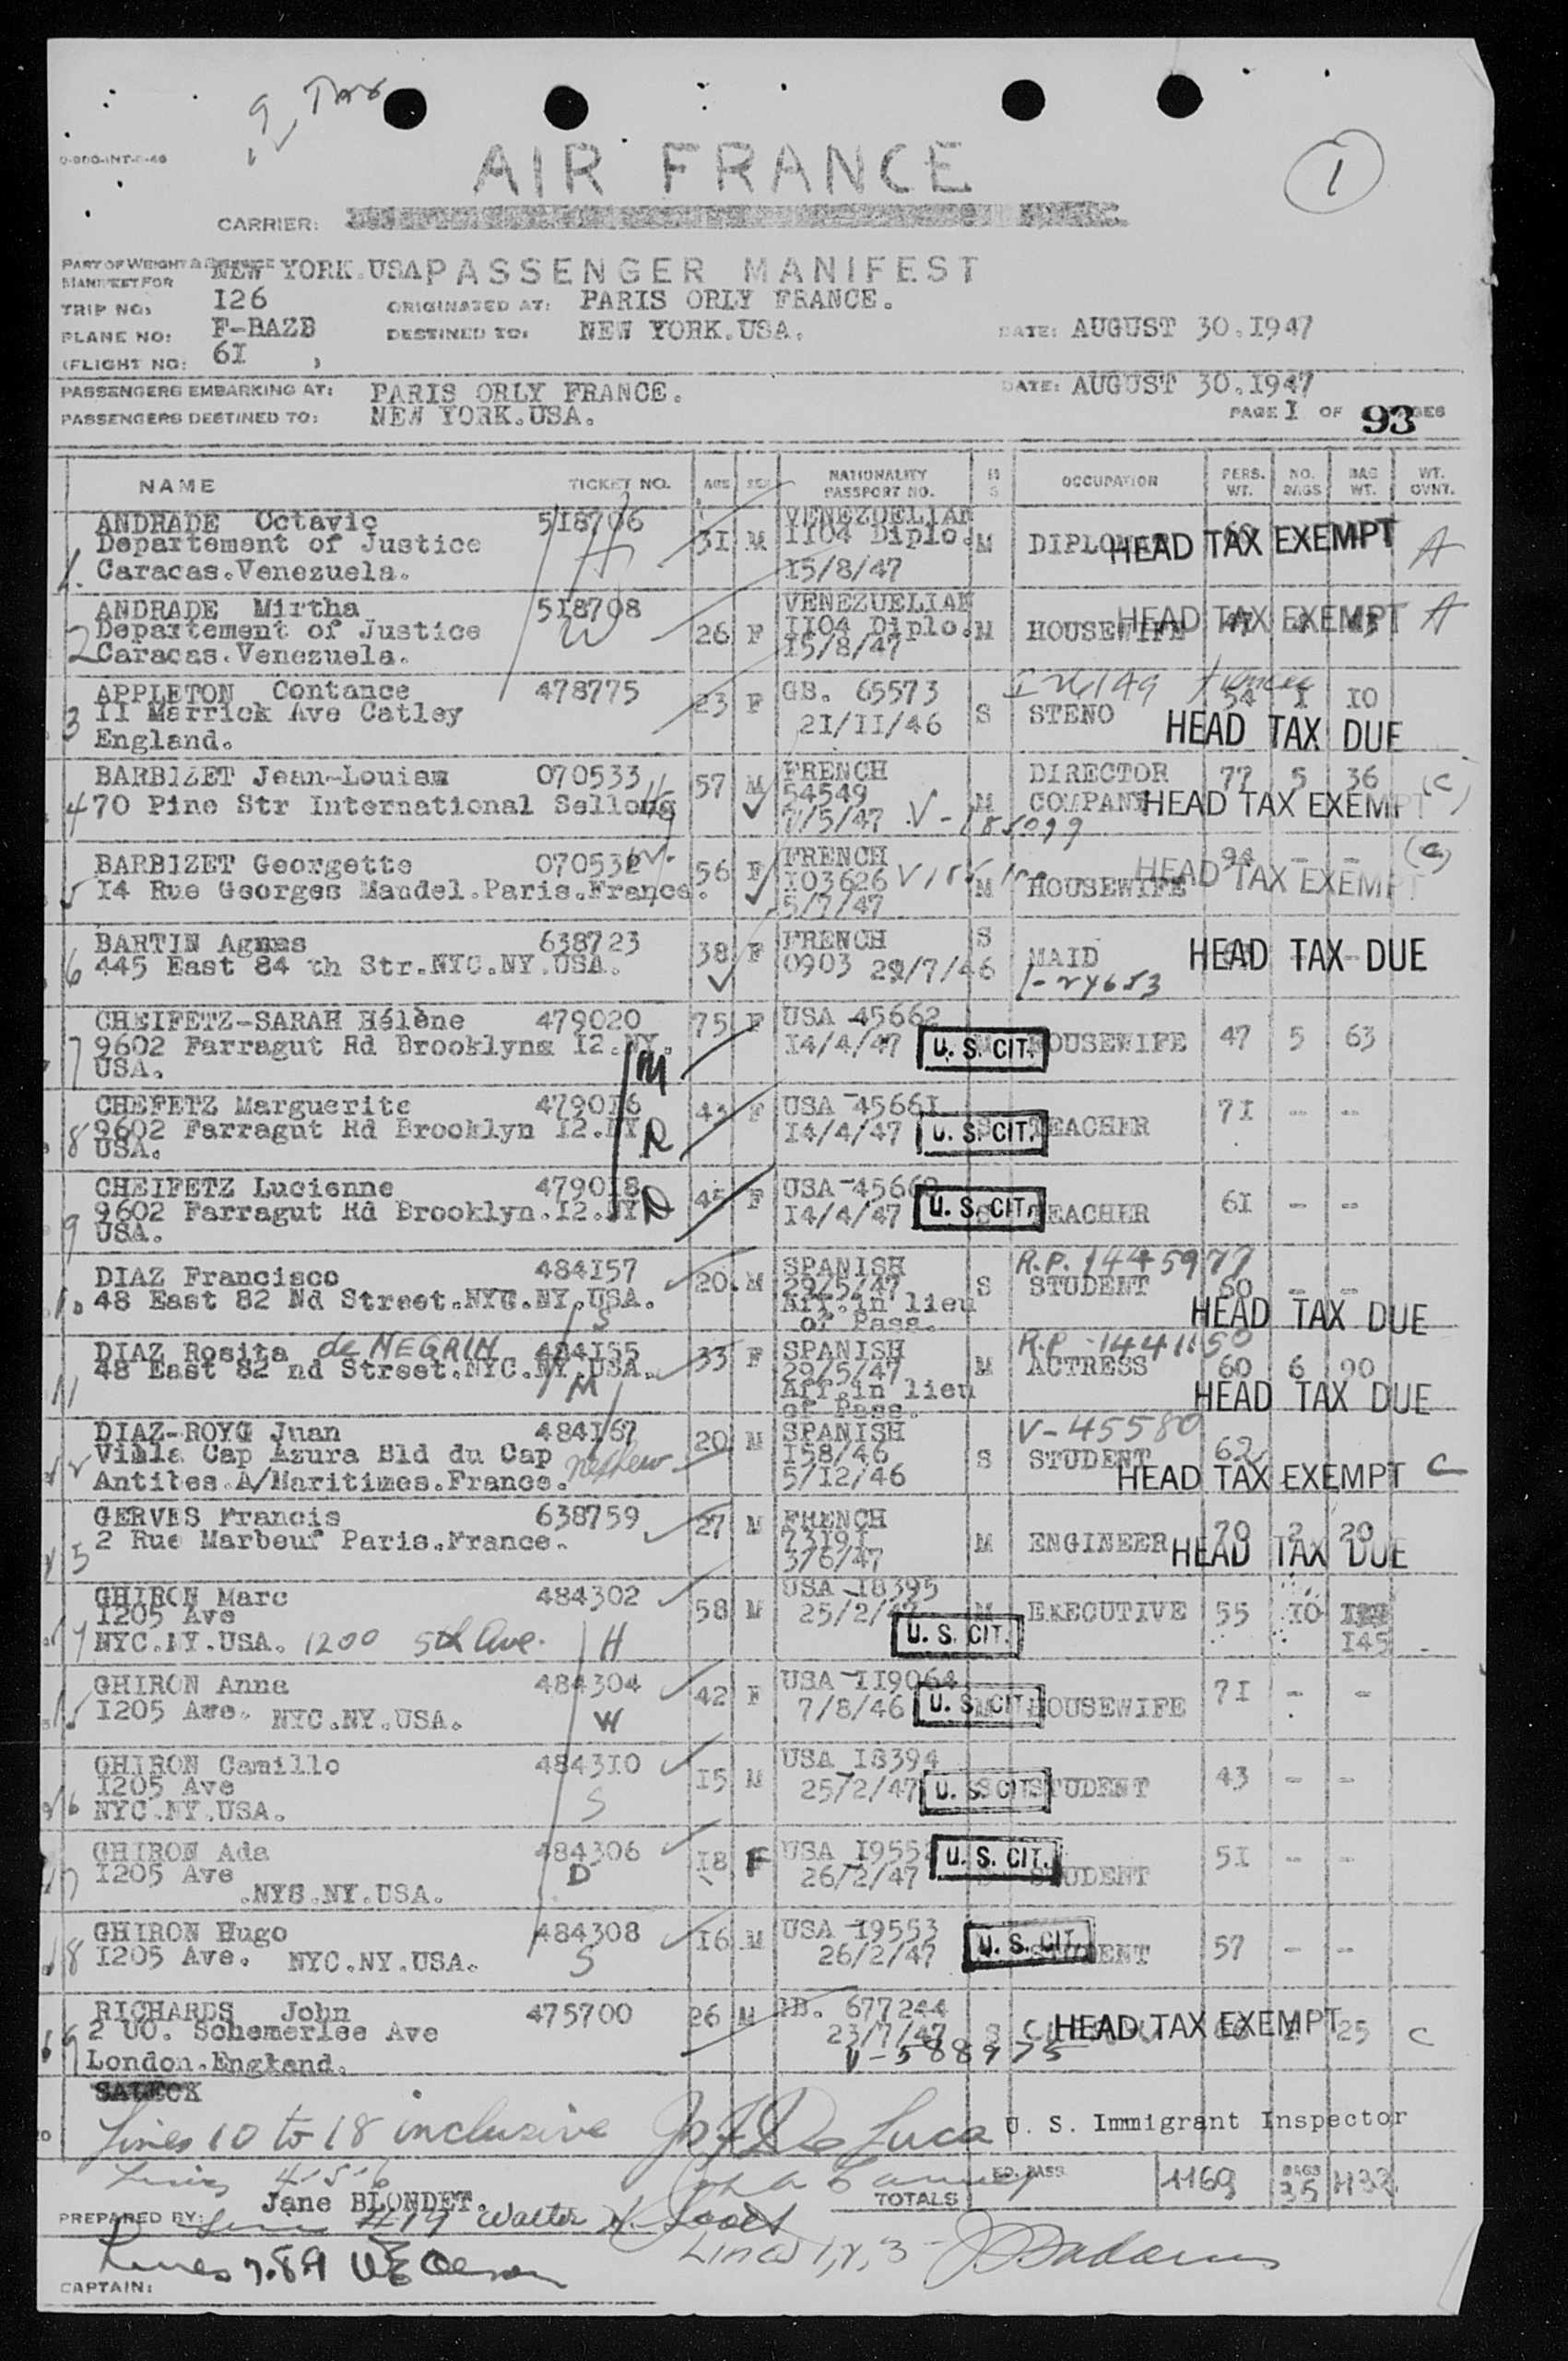 9 Tax
1
0-900-INT-6-46
AIR FRANCE
CARRIER:
PART OF WEIGHT & BALANCE
MANIFEST FOR NEW YORK.USA PASSENGER MANIFEST
TRIP NO: I26 ORIGINATED AT: PARIS ORLY FRANCE.
PLANE NO: F-BAZB DESTINED TO: NEW YORK.USA. DATE: AUGUST 30.I947
(FLIGHT NO: 6I )
PASSENGERS EMBARKING AT: PARIS ORLY FRANCE. DATE: AUGUST 30.I947
PASSENGERS DESTINED TO: NEW YORK.USA. PAGE I OF 93 PAGES
NAME TICKET NO. AGE SEX NATIONALITY PASSPORT NO. M S OCCUPATION PERS. WT. NO. BAGS BAG WT. WT. OVNT.
ANDRADE Octavio 5I8706 3I M VENEZUELIAN
Departement of Justice H II04 Diplo. M DIPLOMAT HEAD TAX EXEMPT A
1. Caracas.Venezuela. I5/8/47
ANDRADE Mirtha 5I8708 VENEZUELIAN
2 Departement of Justice W 26 F II04 Diplo. M HOUSEWIFE HEAD TAX EXEMPT A
Caracas.Venezuela. I5/8/47
APPLETON Contance 478775 23 F GB. 65573 54 I IO
3 II Marrick Ave Catley 2I/II/46 S STENO HEAD TAX DUE
England.
BARBIZET Jean-Louism 070533 H 57 M FRENCH DIRECTOR 77 5 36 (C)
4 70 Pine Str International Sellong 54549 M COMPANY HEAD TAX EXEMPT
7/5/47 V-185099
BARBIZET Georgette 070532 W. 56 F FRENCH 94 - - (C)
5 I4 Rue Georges Mandel.Paris.France. I03626 M HOUSEWIFE HEAD TAX EXEMPT
5/7/47
BARTIN Agnes 638723 38 F FRENCH S
6 445 East 84 th Str.NYC.NY.USA. 0903 29/7/46 MAID HEAD TAX DUE
1-24653
CHEIFETZ-SARAH Hélène 479020 75 F USA 45662
7 9602 Farragut Rd Brooklyn I2.NY. M I4/4/47 U. S. CIT. HOUSEWIFE 47 5 63
USA.
CHEFETZ Marguerite 479016 43 F USA 4566I 7I - -
8 9602 Farragut Rd Brooklyn I2.NY D I4/4/47 U. S. CIT. TEACHER
USA.
CHEIFETZ Lucienne 479018 45 F USA 45660 6I - -
9 9602 Farragut Rd Brooklyn.I2.NY D I4/4/47 U. S. CIT. TEACHER
USA.
DIAZ Francisco 484I57 20. M SPANISH R.P. 1445977
10 48 East 82 Nd Street.NYC.NY.USA. S 29/5/47 S STUDENT 60 - -
Aff.in lieu of Pass. HEAD TAX DUE
DIAZ Rosita de NEGRIN 484I55 33 F SPANISH R.P-1441150
11 48 East 82 nd Street.NYC.NY.USA. M 29/5/47 M ACTRESS 60 6 90
Aff.in lieu of Pass. HEAD TAX DUE
DIAZ-ROYG Juan 484I67 20 M SPANISH V-45580
12 Villa Cap Azura Bld du Cap nephew I58/46 S STUDENT 62
Antibes.A/Maritimes.France. 5/I2/46 HEAD TAX EXEMPT C
GERVES Francis 638759 27 M FRENCH 70 2 20
2 Rue Marbeuf Paris.France. 7319I M ENGINEER HEAD TAX DUE
3/6/47
GHIRON Marc 484302 58 M USA I8395
I205 Ave 25/2/47 M EXECUTIVE 55 IO
NYC.NY.USA. 1200 5th Ave. H U. S. CIT. I45
GHIRON Anna 484304 42 F USA II9064 7I - -
I205 Ave. NYC.NY.USA. W 7/8/46 U. S. CIT. HOUSEWIFE
GHIRON Camillo 4843IO I5 M USA I8394
16 I205 Ave 25/2/47 U. S. CIT. STUDENT 43 - -
NYC.NY.USA. S
GHIRON Ada 484306 I8 F USA I955 U. S. CIT. 5I - -
17 I205 Ave D 26/2/47 STUDENT
.NYS.NY.USA.
GHIRON Hugo 484308 I6 M USA I9553 U. S. CIT.
18 I205 Ave. NYC.NY.USA. S 26/2/47 STUDENT 57 - -
RICHARDS John 475700 26 M GB. 677244
19 2 UO. Schemerlee Ave 23/7/47 S HEAD TAX EXEMPT 25 C
London.England. V-588975
SALECK
Lines 10 to 18 inclusive Jos F De Luca U. S. Immigrant Inspector
Lines 4-5-6
NO. PASS. 1169 BAGS 35 1432
TOTALS
PREPARED BY: Jane BLONDET.
Lines 4 19 Walter H.
Lines 7.8 9 Lines 1,2,3-
CAPTAIN: